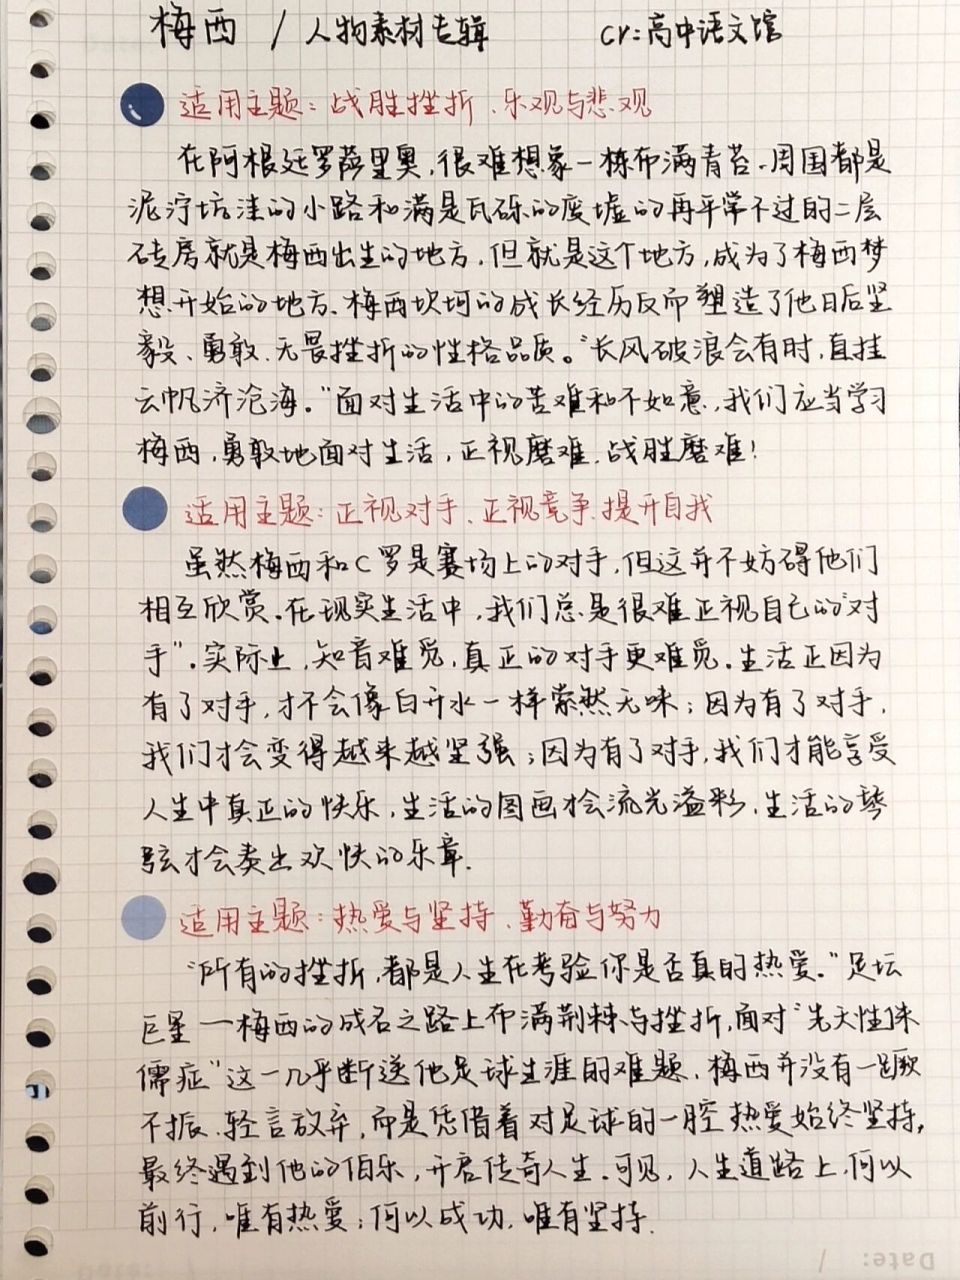 梅西 / 人物素材专辑 cr:高中语文馆
适用主题:战胜挫折、乐观与悲观
在阿根廷罗萨里奥,很难想象一栋布满青苔、周围都是
泥泞坑洼的小路和满是瓦砾的废墟的再平常不过的二层
砖房就是梅西出生的地方,但就是这个地方,成为了梅西梦
想开始的地方、梅西坎坷的成长经历反而塑造了他日后坚
毅、勇敢、无畏挫折的性格品质。“长风破浪会有时,直挂
云帆济沧海。”面对生活中的苦难和不如意,我们应当学习
梅西,勇敢地面对生活,正视磨难、战胜磨难!
适用主题:正视对手、正视竞争、提升自我
虽然梅西和C罗是赛场上的对手,但这并不妨碍他们
相互欣赏。在现实生活中,我们总是很难正视自己的“对
手”。实际上,知音难觅,真正的对手更难觅。生活正因为
有了对手,才不会像白开水一样索然无味;因为有了对手,
我们才会变得越来越坚强;因为有了对手,我们才能享受
人生中真正的快乐,生活的图画才会流光溢彩,生活的琴
弦才会奏出欢快的乐章.
适用主题:热爱与坚持、勤奋与努力
“所有的挫折,都是人生在考验你是否真的热爱。”足坛
巨星——梅西的成名之路上布满荆棘与挫折,面对“先天性侏
儒症”这一几乎断送他足球生涯的难题,梅西并没有一蹶
不振、轻言放弃,而是凭借着对足球的一腔热爱始终坚持,
最终遇到他的伯乐,开启传奇人生。可见,人生道路上,何以
前行,唯有热爱;何以成功,唯有坚持.
Date: /